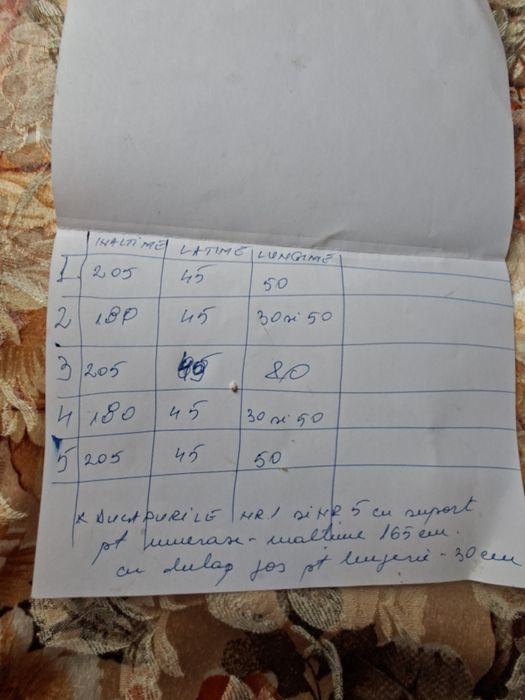 INALTIME LATIME LUNGIME
1 205 45 50
2 180 45 30 si 50
3 205 45 80
4 180 45 30 si 50
5 205 45 50
* DULAPURILE NR.1 si NR 5 cu suport
pt umerase - inaltime 165 cm.
cu dulap jos pt lenjerie - 30 cm